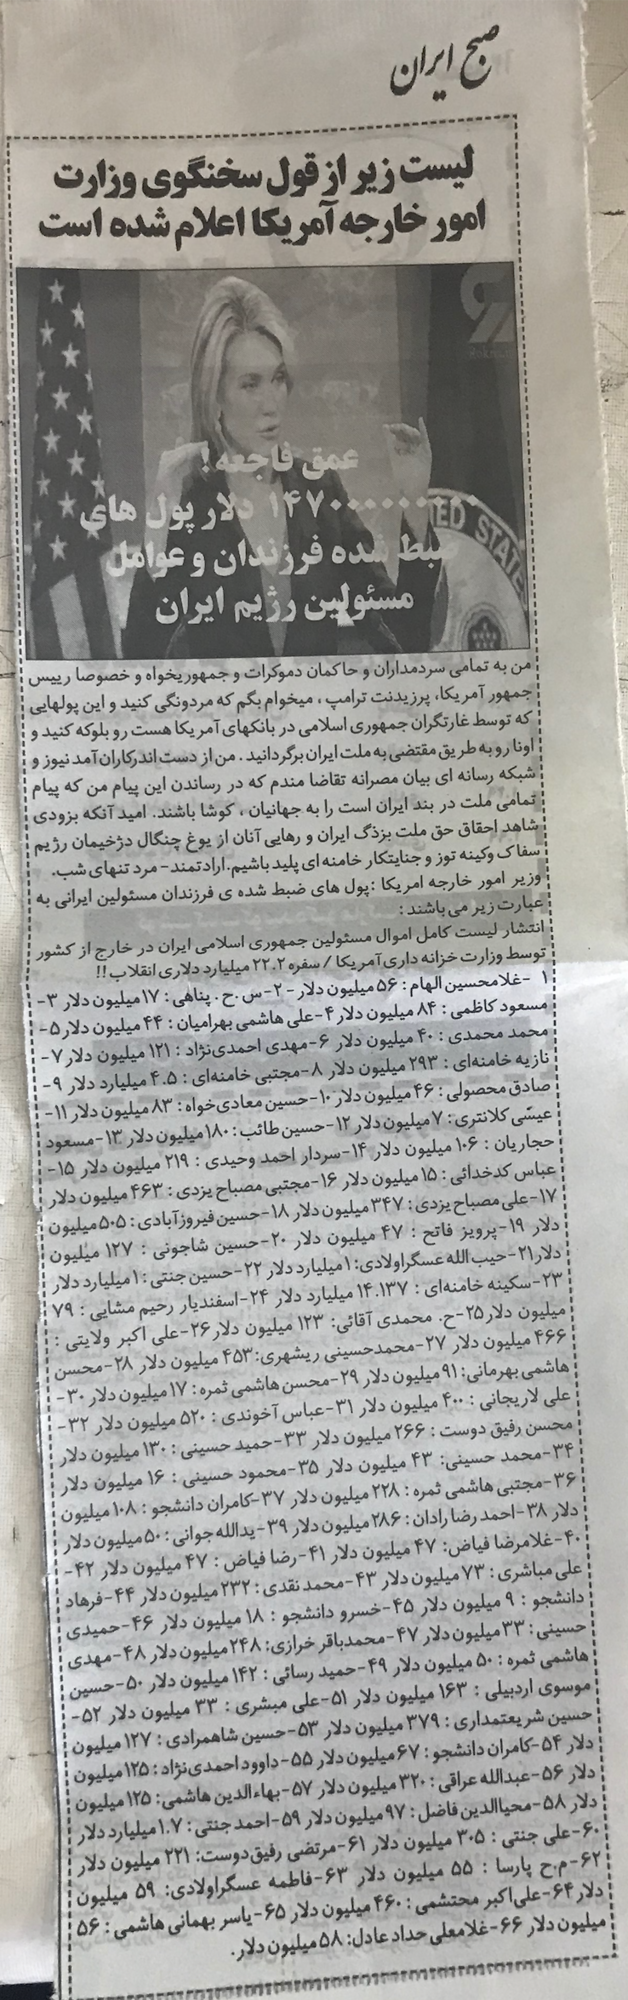 صبح ایران
لیست زیر از قول سخنگوی وزارت
امور خارجه آمریکا اعلام شده است
عمق فاجعه!
۱۴۷۰۰۰۰۰۰۰۰۰ دلار پول های
ضبط شده فرزندان و عوامل
مسئولین رژیم ایران
ED STATE
من به تمامی سردمداران و حاکمان دموکرات و جمهوریخواه و خصوصا رییس
جمهور آمریکا، پرزیدنت ترامپ ، میخوام بگم که مردونگی کنید و این پولهایی
که توسط غارتگران جمهوری اسلامی در بانکهای آمریکا هست رو بلوکه کنید و
اونا رو به طریق مقتضی به ملت ایران برگردانید . من از دست اندرکاران آمد نیوز و
شبکه رسانه ای بیان مصرانه تقاضا مندم که در رساندن این پیام من که پیام
تمامی ملت در بند ایران است را به جهانیان ، کوشا باشند. امید آنکه بزودی
شاهد احقاق حق ملت بزرگ ایران و رهایی آنان از یوغ چنگال دژخیمان رژیم
سفاک وکینه توز و جنایتکار خامنه ای پلید باشیم.ارادتمند- مرد تنهای شب.
وزیر امور خارجه امریکا :پول های ضبط شده ی فرزندان مسئولین ایرانی به
عبارت زیر می باشند :
انتشار لیست کامل اموال مسئولین جمهوری اسلامی ایران در خارج از کشور
توسط وزارت خزانه داری آمریکا / سفره ۲۲.۲ میلیارد دلاری انقلاب!!
۱ -غلامحسین الهام : ۵۶ میلیون دلار - ۲-س.ح. پناهی : ۱۷ میلیون دلار ۳-
مسعود کاظمی : ۸۴ میلیون دلار ۴-علی هاشمی بهرامیان : ۴۴ میلیون دلار ۵-
محمد محمدی : ۴۰ میلیون دلار ۶-مهدی احمدی‌نژاد : ۱۲۱ میلیون دلار ۷-
نازیه خامنه‌ای : ۲۹۳ میلیون دلار ۸-مجتبی خامنه‌ای : ۴.۵ میلیارد دلار ۹-
صادق محصولی : ۴۶ میلیون دلار ۱۰-حسین معادی‌خواه : ۸۳ میلیون دلار ۱۱-
عیسّی کلانتری : ۷ میلیون دلار ۱۲-حسین طائب : ۱۸۰ میلیون دلار ۱۳-مسعود
حجاریان : ۱۰۶ میلیون دلار ۱۴-سردار احمد وحیدی : ۲۱۹ میلیون دلار ۱۵-
عباس کدخدائی : ۱۵ میلیون دلار ۱۶-مجتبی مصباح یزدی : ۴۶۳ میلیون دلار
۱۷-علی مصباح یزدی : ۳۴۷ میلیون دلار ۱۸-حسین فیروزآبادی : ۵۰۵ میلیون
دلار ۱۹-پرویز فاتح : ۴۷ میلیون دلار ۲۰-حسین شاجونی : ۱۲۷ میلیون
دلار۲۱-حبیب الله عسگراولادی: ۱ میلیارد دلار ۲۲-حسین جنتی : ۱ میلیارد دلار
۲۳-سکینه خامنه‌ای : ۱۴.۱۳۷ میلیارد دلار ۲۴-اسفندیار رحیم مشایی : ۷۹
میلیون دلار ۲۵-ح. محمدی آقائی: ۱۲۳ میلیون دلار ۲۶-علی اکبر ولایتی :
۴۶۶ میلیون دلار ۲۷-محمدحسینی ریشهری: ۴۵۳ میلیون دلار ۲۸-محسن
هاشمی بهرمانی: ۹۱ میلیون دلار ۲۹-محسن هاشمی ثمره : ۱۷ میلیون دلار ۳۰-
علی لاریجانی : ۴۰۰ میلیون دلار ۳۱-عباس آخوندی : ۵۲۰ میلیون دلار ۳۲-
محسن رفیق دوست : ۲۶۶ میلیون دلار ۳۳-حمید حسینی : ۱۳۰ میلیون دلار
۳۴-محمد حسینی: ۴۳ میلیون دلار ۳۵-محمود حسینی : ۱۶ میلیون دلار
۳۶-مجتبی هاشمی ثمره : ۲۲۸ میلیون دلار ۳۷-کامران دانشجو : ۱۰۸ میلیون
دلار ۳۸-احمد رضا رادان : ۲۸۶ میلیون دلار ۳۹-یدالله جوانی : ۵۰ میلیون دلار
۴۰-غلامرضا فیاض: ۴۷ میلیون دلار ۴۱-رضا فیاض : ۴۷ میلیون دلار ۴۲-
علی مباشری : ۷۳ میلیون دلار ۴۳-محمد نقدی : ۲۳۲ میلیون دلار ۴۴-فرهاد
دانشجو : ۹ میلیون دلار ۴۵-خسرو دانشجو : ۱۸ میلیون دلار ۴۶-حمیدی
حسینی : ۳۳ میلیون دلار ۴۷-محمدباقر خرازی: ۲۴۸ میلیون دلار ۴۸-مهدی
هاشمی ثمره : ۵۰ میلیون دلار ۴۹-حمید رسائی : ۱۴۲ میلیون دلار ۵۰-حسین
موسوی اردبیلی : ۱۶۳ میلیون دلار ۵۱-علی مبشری : ۳۳ میلیون دلار ۵۲-
حسین شریعتمداری : ۳۷۹ میلیون دلار ۵۳-حسین شاهمرادی : ۱۲۷ میلیون
دلار ۵۴-کامران دانشجو : ۶۷ میلیون دلار ۵۵-داوود احمدی‌نژاد : ۱۲۵ میلیون
دلار ۵۶-عبدالله عراقی : ۳۲۰ میلیون دلار ۵۷-بهاءالدین هاشمی: ۱۲۵ میلیون
دلار ۵۸-محیاالدین فاضل : ۹۷ میلیون دلار ۵۹-احمد جنتی : ۱.۷ میلیارد دلار
۶۰-علی جنتی : ۳۰۵ میلیون دلار ۶۱-مرتضی رفیق‌دوست : ۲۲۱ میلیون دلار
۶۲-م.ح پارسا : ۵۵ میلیون دلار ۶۳-فاطمه عسگراولادی: ۵۹ میلیون
دلار۶۴-علی‌اکبر محتشمی : ۴۶۰ میلیون دلار ۶۵-یاسر بهمانی هاشمی : ۵۶
میلیون دلار ۶۶-غلامعلی حداد عادل: ۵۸ میلیون دلار.